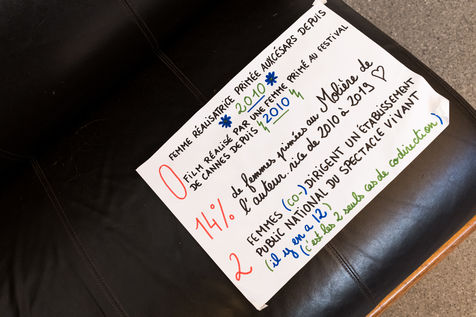 0 FEMME RÉALISATRICE PRIMÉE AUX CÉSARS DEPUIS
* 2010 *
FILM RÉALISÉ PAR UNE FEMME PRIMÉ AU FESTIVAL
DE CANNES DEPUIS 2010
14% de femmes primées au Molière de
l'auteur.rice de 2010 à 2019 ♡
2 FEMMES (CO-) DIRIGENT UN ÉTABLISSEMENT
PUBLIC NATIONAL DU SPECTACLE VIVANT
(il y en a 12) (c'est les 2 seuls cas de codirection)